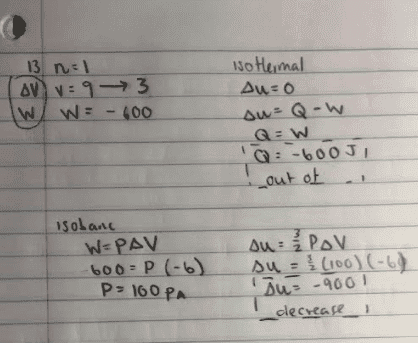 13 n=1
ΔV V = 9 → 3
W W = -600
isothermal
Δu=0
Δu= Q - W
Q = W
Q = -600 J
out of
isobaric
W= PΔV
-600 = P (-6)
P= 100 PA
Δu = 3/2 PΔV
Δu = 3/2 (100)(-6)
Δu= -900
decrease